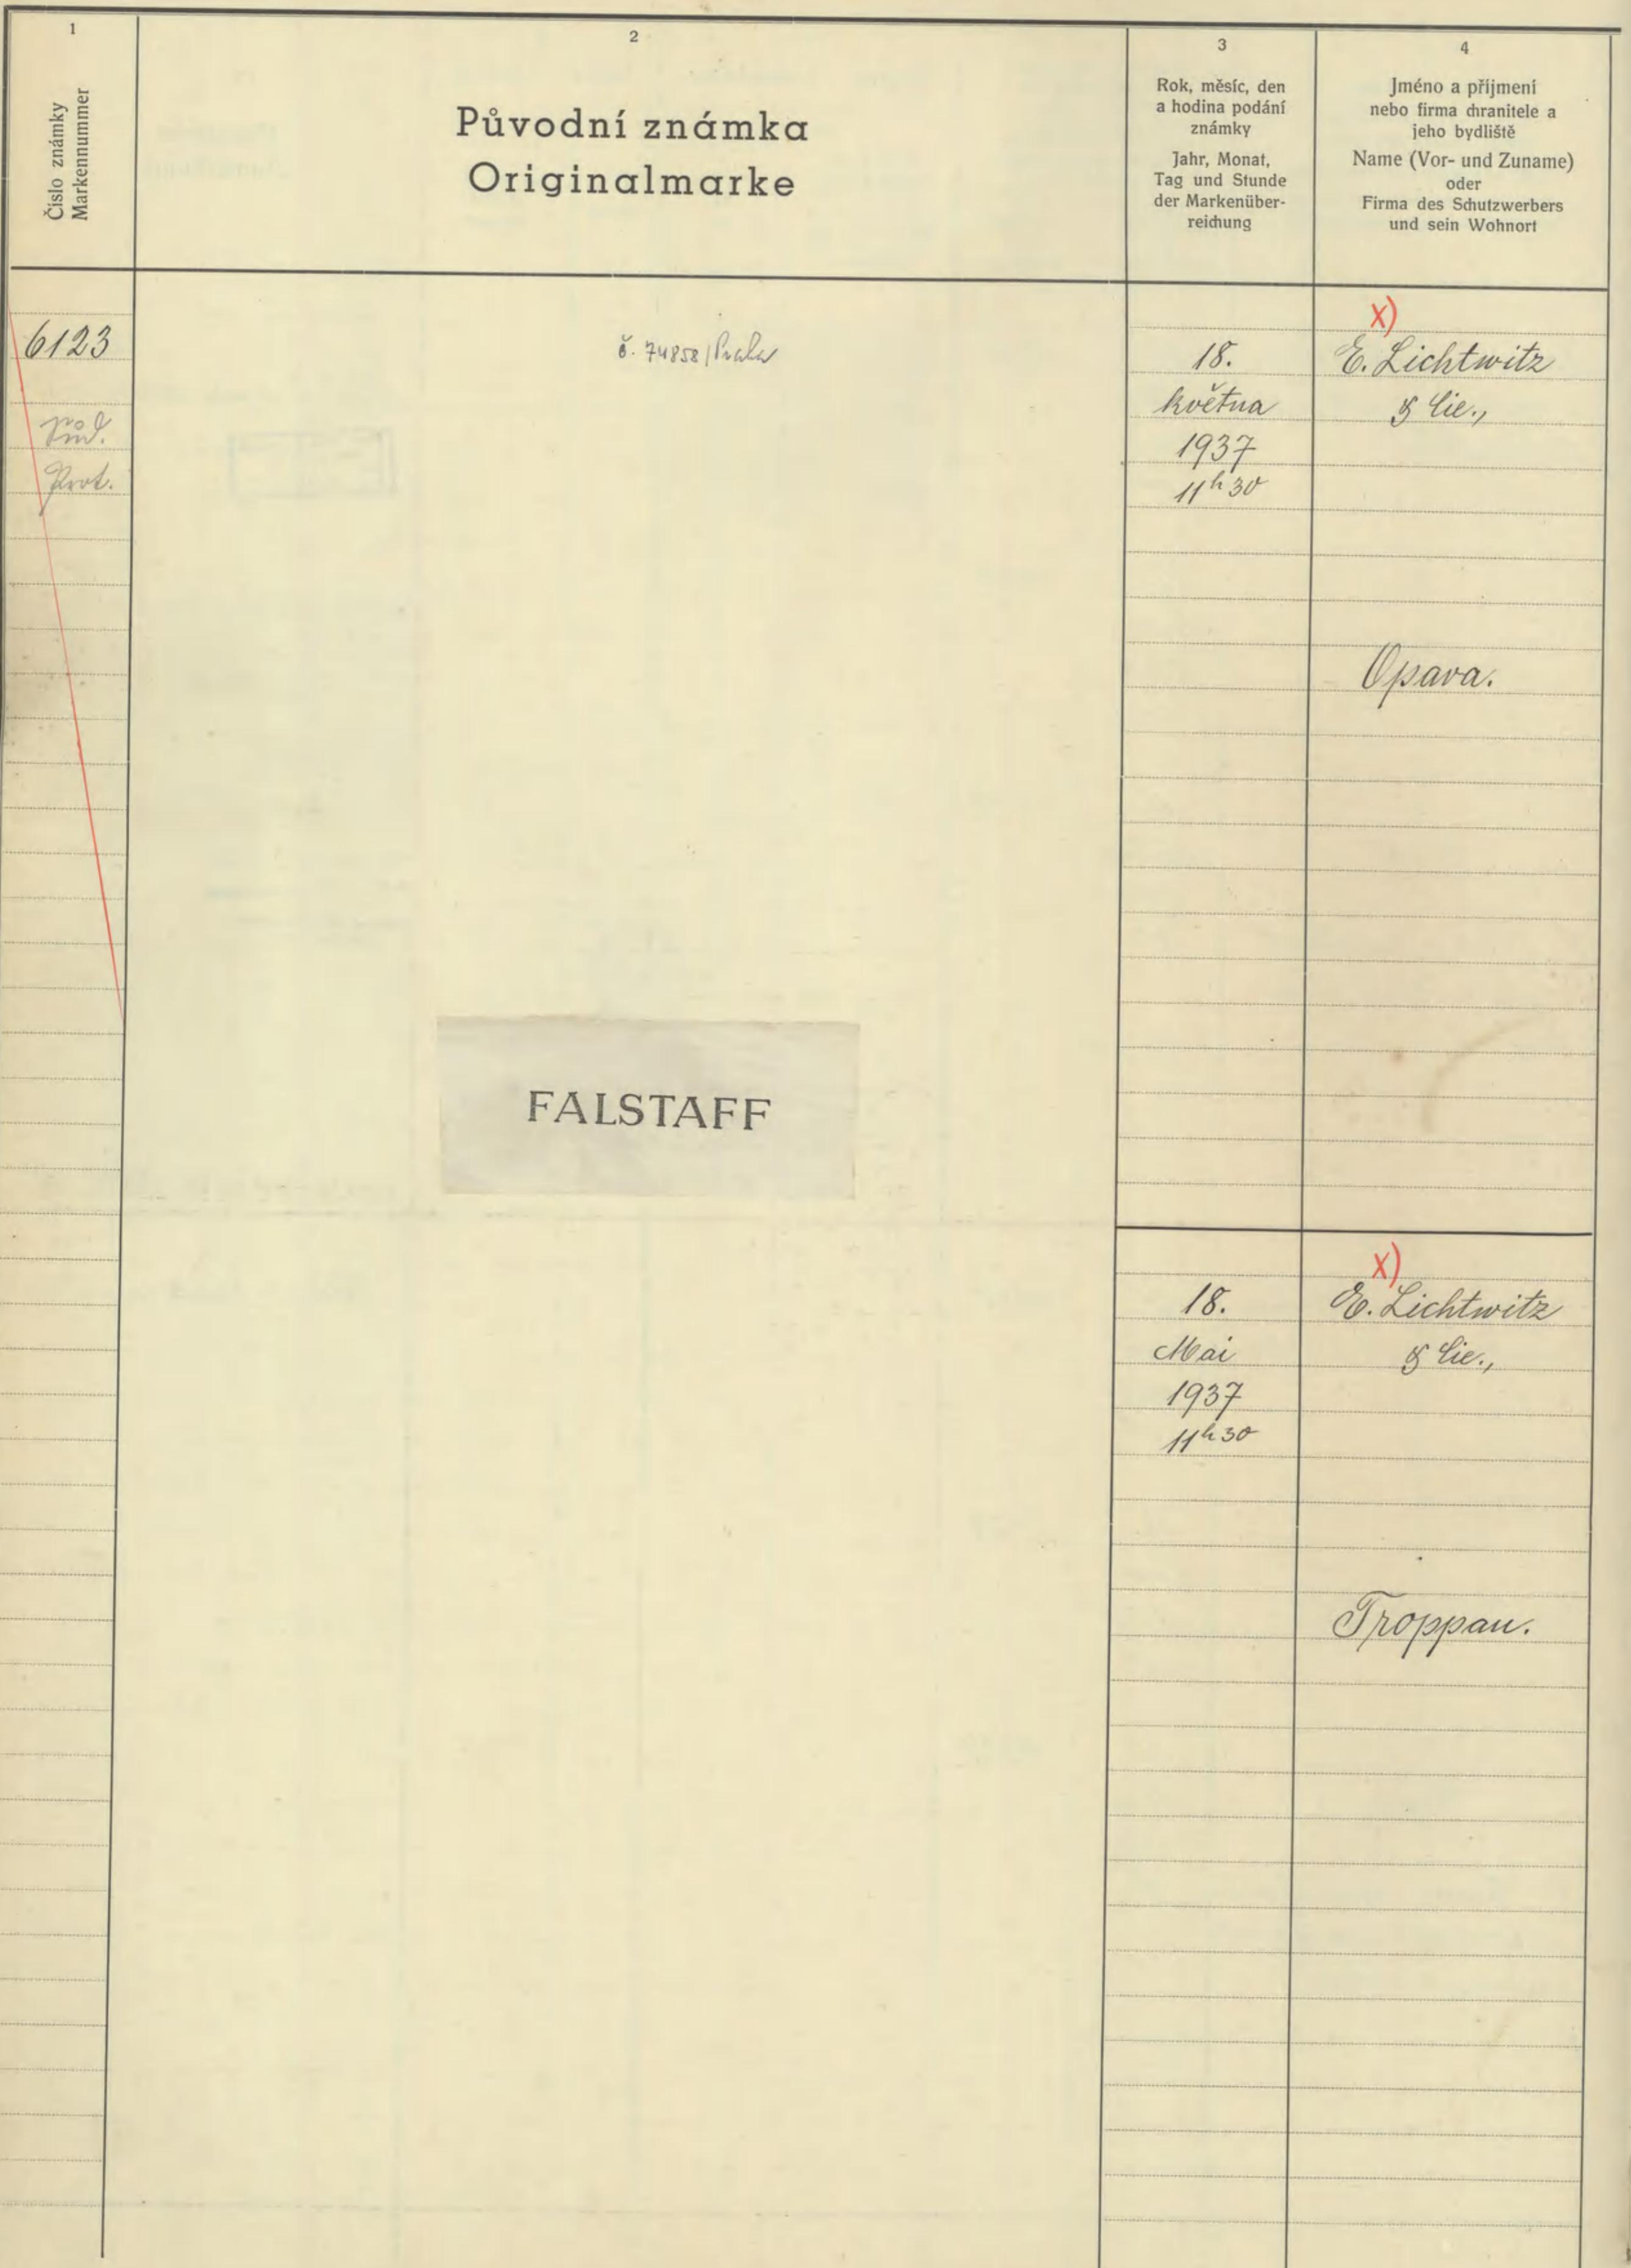 1
Číslo známky
Markennummer
2
Původní známka
Originalmarke
3
Rok, měsíc, den
a hodina podání
známky
Jahr, Monat,
Tag und Stunde
der Markenüber-
reichung
4
Jméno a příjmení
nebo firma chranitele a
jeho bydliště
Name (Vor- und Zuname)
oder
Firma des Schutzwerbers
und sein Wohnort
6123
Prot.
č. 74858/Praha
18.
května
1937
11h30
x)
E. Lichtwitz
& Cie.,
Opava.
FALSTAFF
18.
Mai
1937
11h30
x)
E. Lichtwitz
& Cie.,
Troppau.